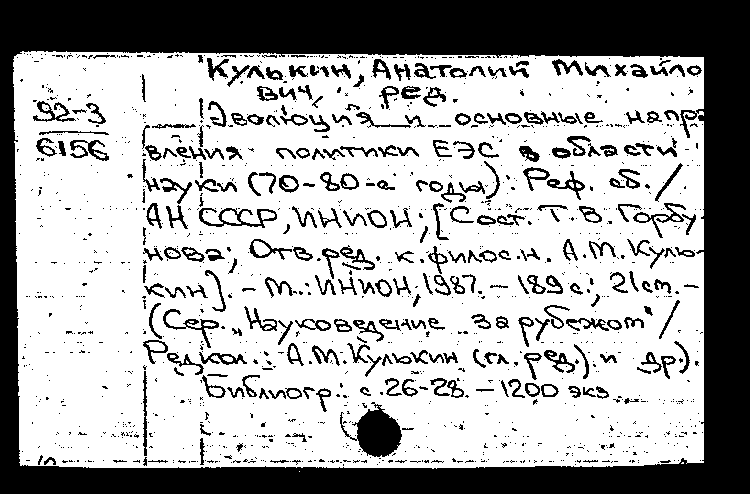 Кулькин, Анатолий Михайло
вич, ред.
92-3
6156
Эволюция и основные напра
вления политики ЕЭС в области
науки (70-80-е годы): Реф. сб. /
АН СССР, ИНИОН; [Сост. Т.В. Горбу-
нова; Отв.ред. к.филос.н. А.М. Куль-
кин]. - М.: ИНИОН, 1987. - 189 с.; 21 см. -
(Сер. "Науковедение за рубежом" /
Редкол.: А.М. Кулькин (гл. ред.) и др.).
Библиогр.: с. 26-28. - 1200 экз